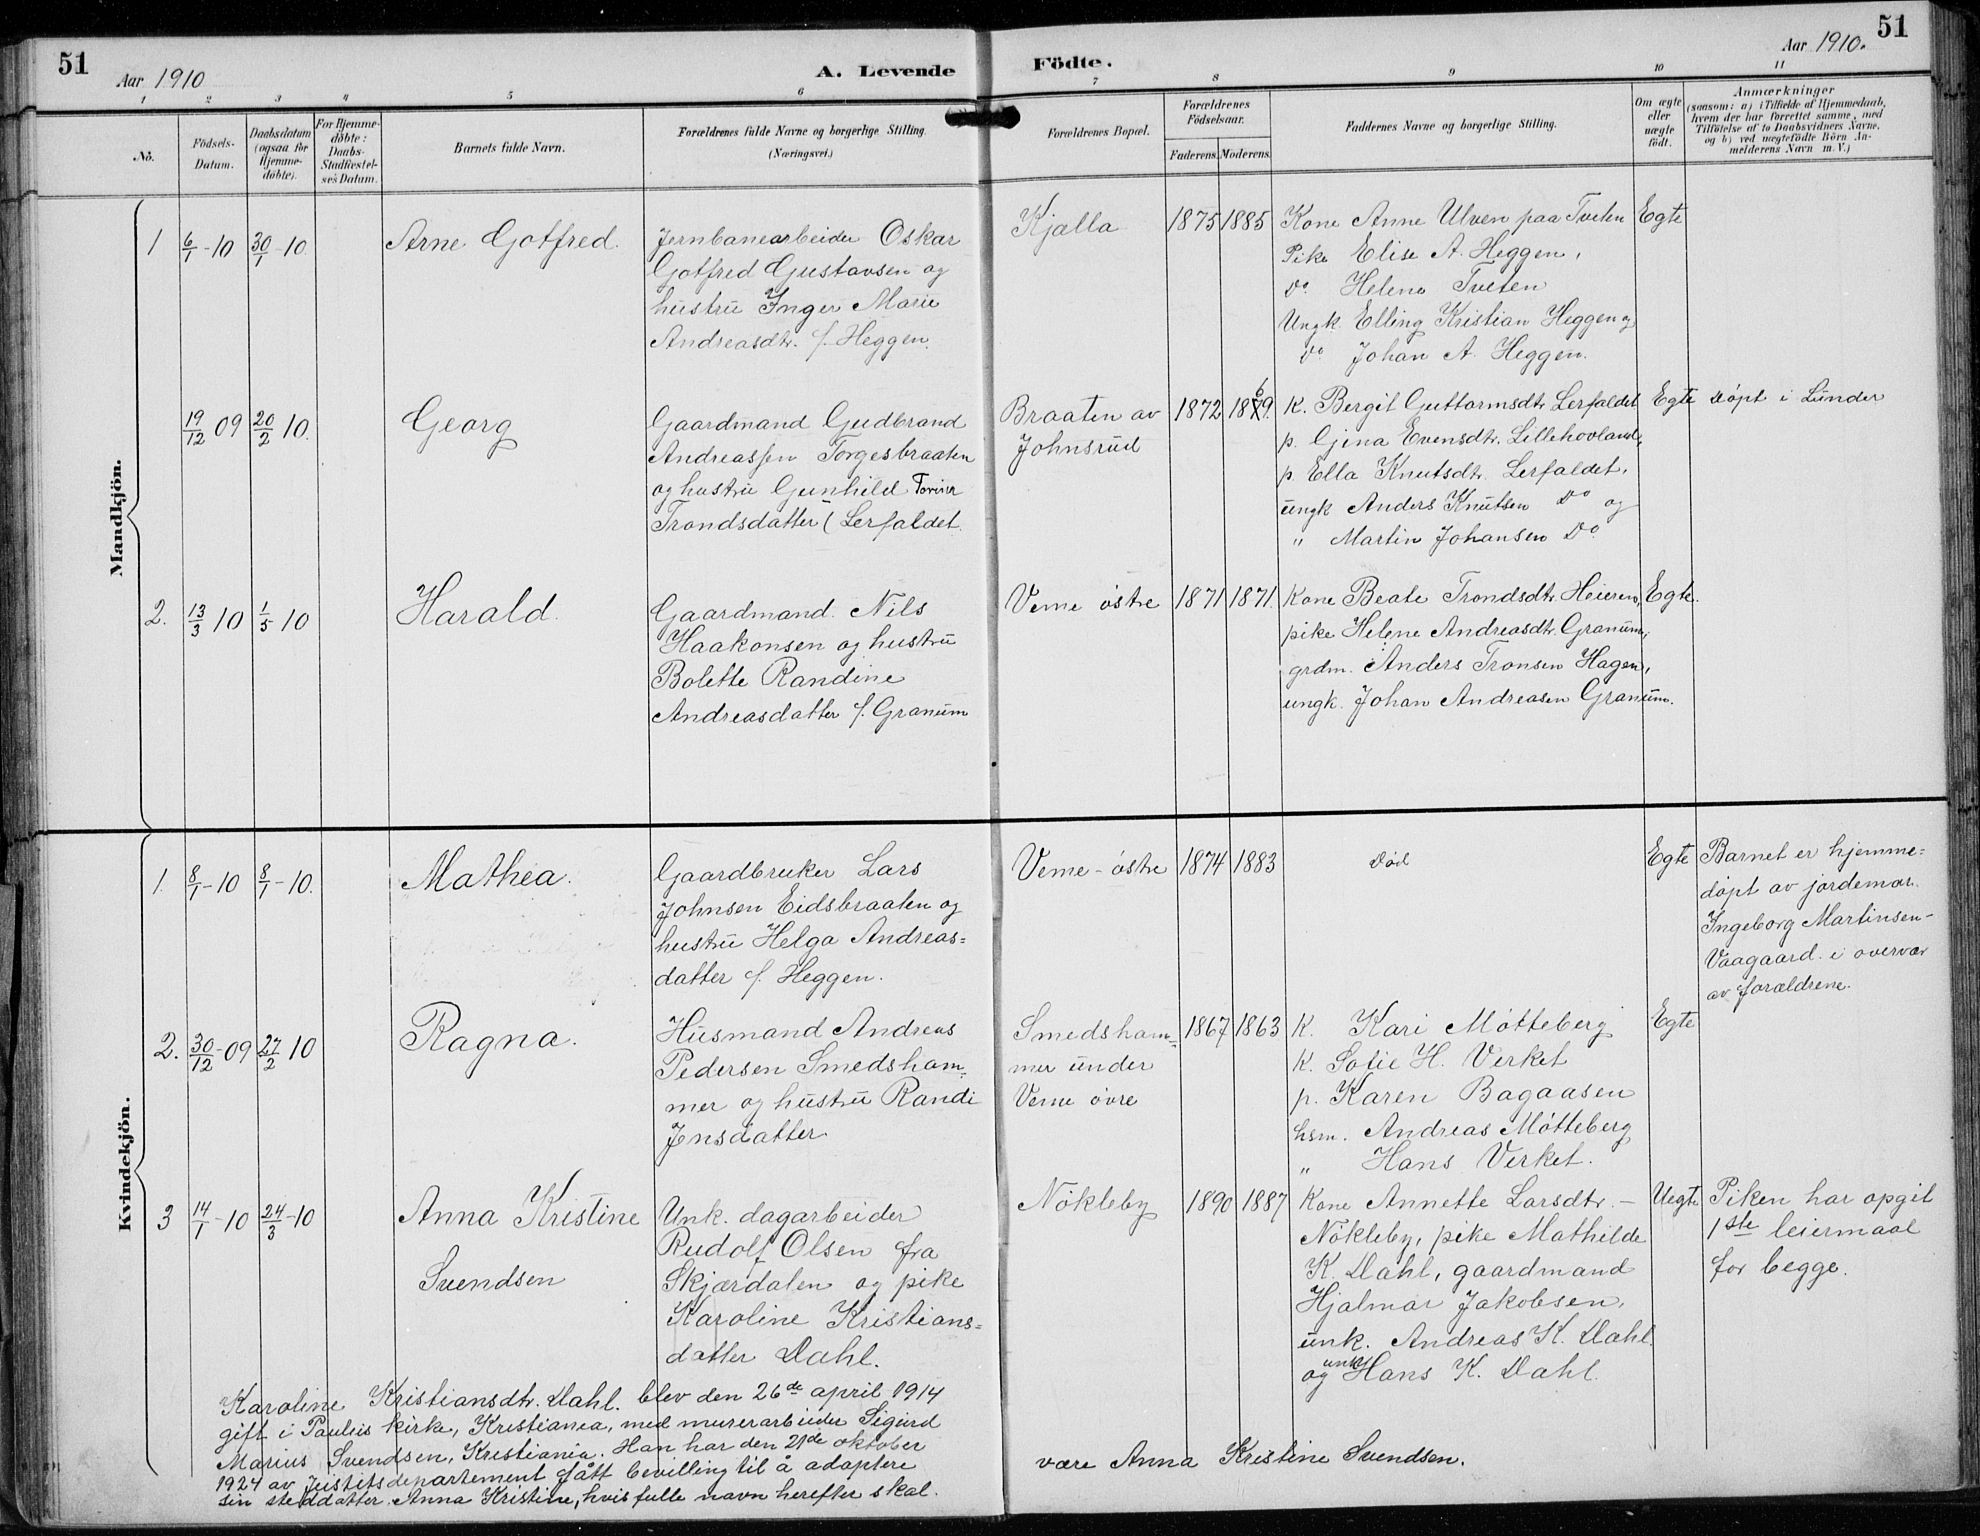 51
Aar 1910
A. Levende
Födte.
Aar 1910.
51
1 2 3 4 5 6 7 8 9 10 11
No.
Födsels-
Datum.
Daabsdatum
(ogsaa for
Hjemme-
döbte).
For Hjemme-
döbte:
Daabs-
Stadfæstel-
ses Datum.
Barnets fulde Navn.
Forældrenes fulde Navne og borgerlige Stilling.
(Næringsvei.)
Forældrenes Bopæl.
Forældrenes
Födselsaar.
Faderens.
Moderens.
Faddernes Navne og borgerlige Stilling.
Om ægte
eller
uægte
födt.
Anmærkninger
(saasom: a) i Tilfælde af Hjemmedaab,
hvem der har forrettet samme, med
Tilföielse af to Daabsvidners Navne,
og b) ved uægtefödte Börn An-
melderens Navn m. V.)
Mandkjön.
1
6/1 - 10
30/1 - 10.
Arne Gotfred.
Jernbanearbeider Oskar
Gotfred Gustavsen og
hustru Inger Marie
Andreasdtr. f. Heggen.
Kjalla
1875
1885
Kone Anne Ulven paa Tveten
Pike Elise A. Heggen,
do. Helene Tveten
Ungk. Elling Kristian Heggen og
do Johan A. Heggen.
Egte
19/12 09
20/2 10.
Georg
Gaardmand Gudbrand
Andreassen Torgesbraaten
og hustru Gunhild
Trondsdatter (Lerfaldet.
Braaten av
Johnsrud
1872
1869.
K. Bergit Guttormsdtr. Lerfaldet
p. Gina Evensdtr. Lillehovland,
p. Ella Knutsdtr. Lerfaldet,
ungk Anders Knutsen Do og
" Martin Johansen Do.
Egte
døpt i Lunder
2.
13/3 10
1/5 10
Harald.
Gaardmand. Nils
Haakonsen og hustru
Bolette Randine
Andreasdatter f. Granum
Veme østre
1871
1871.
Kone Beate Trondsdtr. Heieren,
pike Helene Andreasdtr. Granum,
grdm. Anders Tronsen Hagen,
ungk. Johan Andreasen Granum.
Egte.
Kvindekjön.
1.
8/1 - 10
8/1 - 10.
Mathea.
Gaardbruker Lars
Johnsen Eidsbraaten og
hustru Helga Andreas=
datter f. Heggen.
Veme - østre
1874
1883
død
Egte
Barnet er hjemme=
døpt av jordemor
Ingeborg Martinsen-
Vaagaard. i overvær
av forældrene.
2.
30/12 - 09
27/2 10
Ragna.
Husmand Andreas
Pedersen Smedsham=
mer og hustru Randi
Jensdatter
Smedsham=
mer under
Veme øvre
1867
1863
K. Kari Møtteberg
K. Sofie H. Verket
p. Karen Bagaasen
hsm. Andreas Møtteberg
" Hans Verket.
Egte
3
14/1 - 10
24/3 - 10
Anna Kristine
Svendsen
Unk. dagarbeider
Rudolf Olsen fra
Skjærdalen og pike
Karoline Kristians=
datter Dahl.
Nökleby
1890
1887
Kone Annette Larsdtr. -
Nökleby, pike Mathilde
K. Dahl, gaardmand
Hjalmar Jakobsen,
unk. Andreas K. Dahl
og unk. Hans K. Dahl.
Uegte
Piken har opgit
1ste leiermaal
for begge.
Karoline Kristiansdtr. Dahl. blev den 26de april 1914
gift i Paulus kirke, Kristiania, med murerarbeider Sigurd
Marius Svendsen, Kristiania. Han har den 21de oktober
1924 av Justitsdepartement fått bevilling til å adoptere
sin steddatter. Anna Kristine, hvis fulle navn herefter skal.
være Anna Kristine Svendsen.